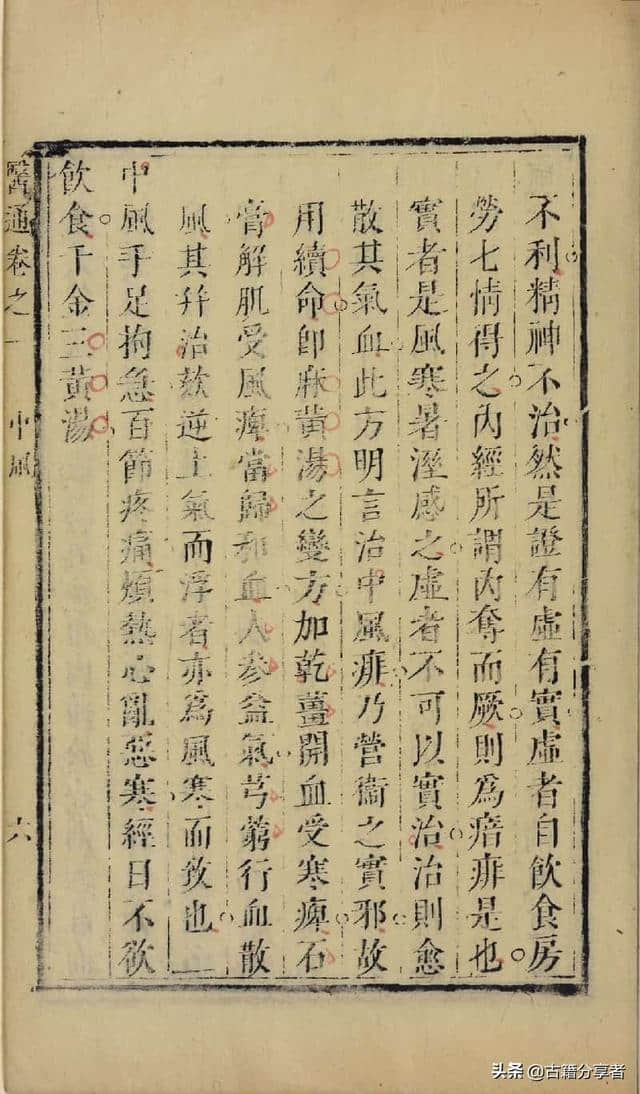 不利精神不治然是證有虛有實虛者自飲食房
勞七情得之內經所謂內奪而厥則為瘖痱是也
實者是風寒暑溼感之虛者不可以實治治則愈
散其氣血此方明言治中風痱乃營衞之實邪故
用續命卽麻黃湯之變方加乾薑開血受寒痺石
膏解肌受風痺當歸和血人參益氣芎藭行血散
風其幷治欬逆上氣而浮者亦為風寒而致也
中風手足拘急百節疼痛煩熱心亂惡寒經日不欲
飲食千金三黃湯
醫通卷之一 中風 六
头条 @古籍分享者